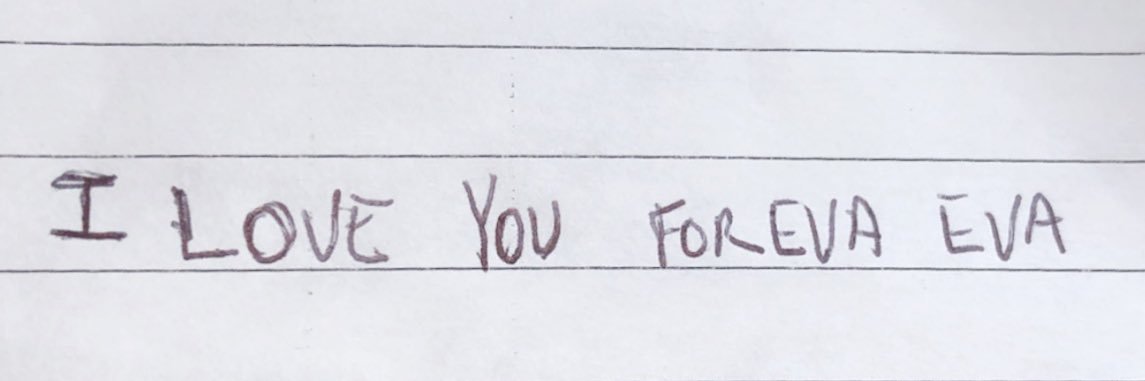 I LOVE YOU FOREVA EVA